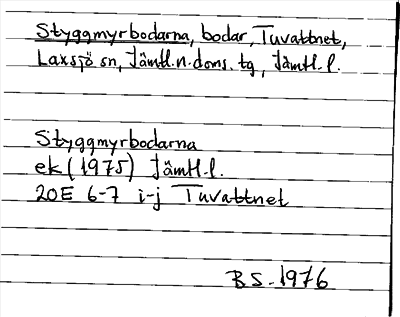 Styggmyrbodarna, bodar, Tuvattnet,
Laxsjö sn, Jämtl.n.doms.tg, Jämtl.l.
Styggmyrbodarna
ek (1975) Jämtl.l.
20E 6-7 i-j Tuvattnet
BS-1976